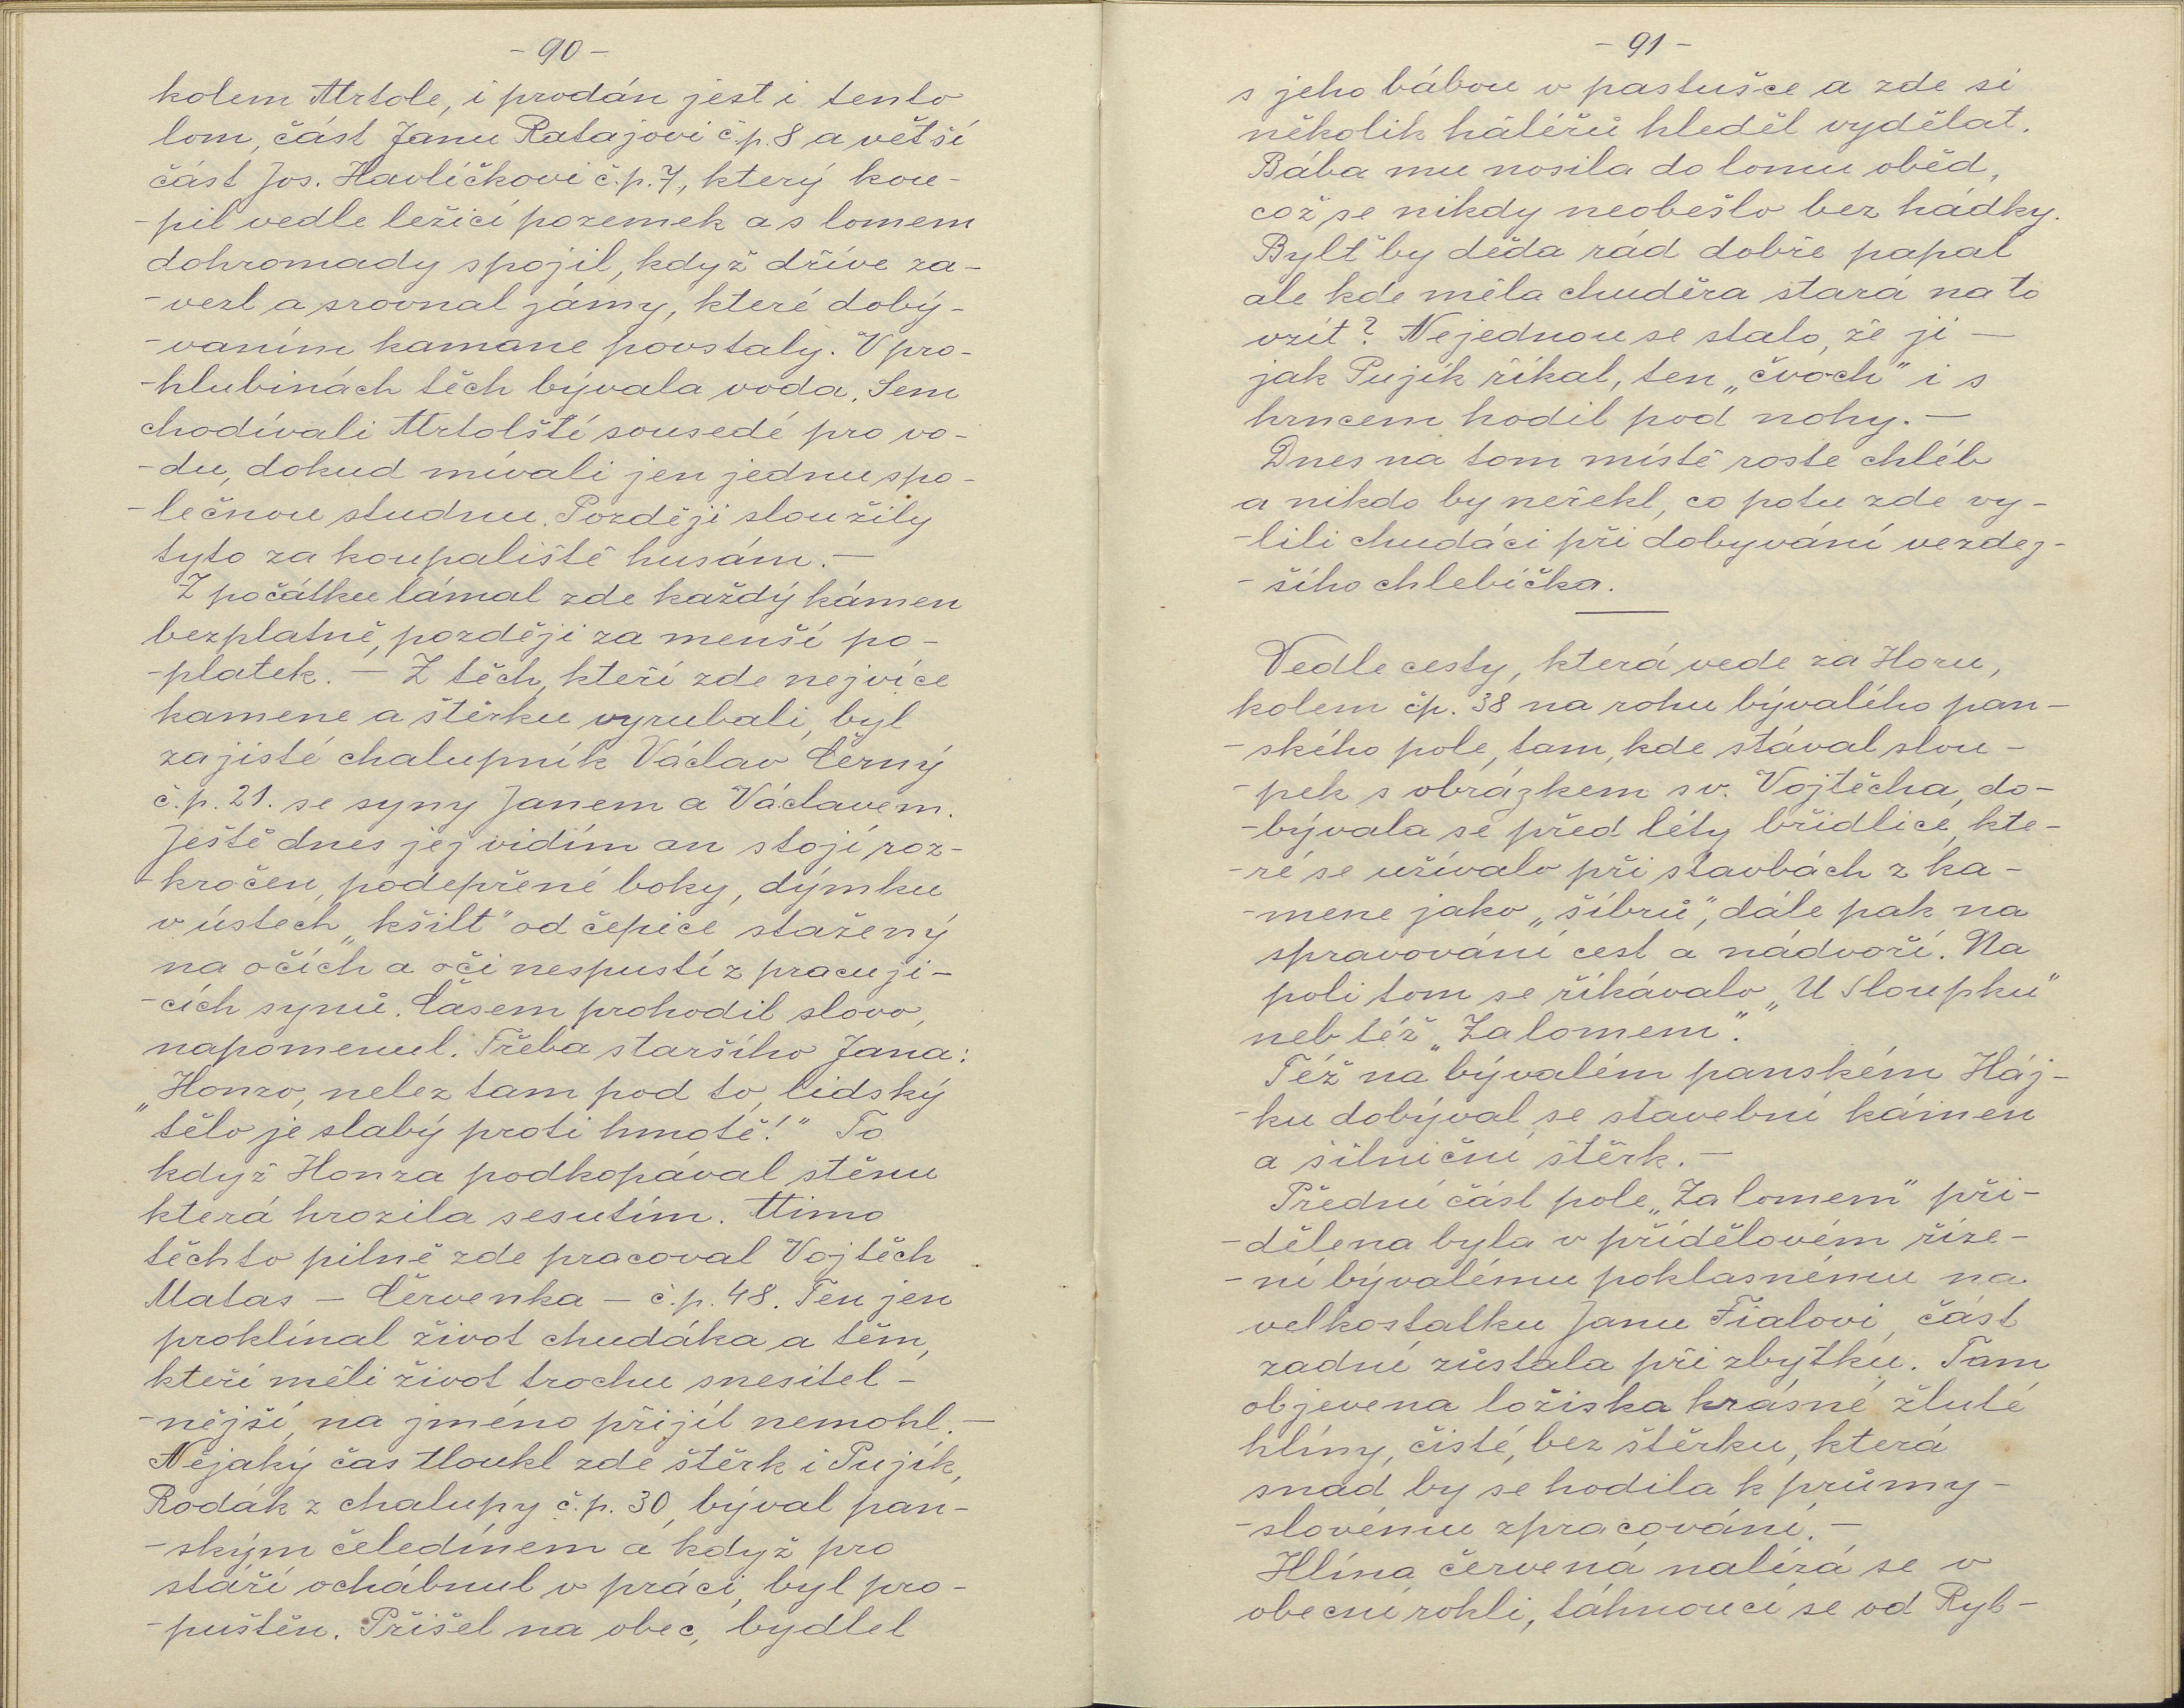 - 90 -
kolem Mrtole, i prodán jest i tento
lom, část Janu Ratajovi č.p. 8 a větší
část Jos. Havlíčkovi č.p. 7, který kou-
-pil vedle ležící pozemek a s lomem
dohromady spojil, když dříve za-
-vezl a srovnal jámy, které dobý-
-vaním kamane povstaly. V pro-
-hlubinách těch bývala voda. Sem
chodívali Mrtolští sousedé pro vo-
-du, dokud mívali jen jednu spo-
-lečnou studnu. Později sloužily
tyto za koupaliště husám. -
Z počátku lámal zde každý kámen
bezplatně, později za menší po-
-platek. - Z těch, kteří zde nejvíce
kamene a štěrku vyrubali, byl
zajisté chalupník Václav Černý
č.p. 21. se syny Janem a Václavem.
Ještě dnes jej vidím an stojí roz-
-kročen, podepřené boky, dýmku
v ústech „kšilt" od čepice stažený
na očích a oči nespustí z pracují-
-cích synů. Časem prohodil slovo,
napomenul. Třeba staršího Jana:
„Honzo, nelez tam pod to, lidský
tělo je slabý proti hmotě!" To
když Honza podkopával stěnu
která hrozila sesutím. Mimo
těchto pilně zde pracoval Vojtěch
Matas - Červenka - č.p. 48. Ten jen
proklínal život chudáka a těm,
kteří měli život trochu snesitel-
-nější, na jméno přijít nemohl. -
Nějaký čas tloukl zde štěrk i Pujík,
Rodák z chalupy č.p. 30, býval pan-
-ským čeledínem a když pro
stáří ochábnul v práci, byl pro-
-puštěn. Přišel na obec, bydlel
- 91 -
s jeho bábou v pastušce a zde si
několik háléřů hleděl vydělat.
Bába mu nosila do lomu oběd,
což se nikdy neobešlo bez hádky.
Bylť by děda rád dobře papal
ale kde měla chuděra stará na to
vzít? Nejednou se stalo, že jí -
jak Pujík říkal, ten „čvoch" i s
hrncem hodil pod nohy. -
Dnes na tom místě roste chléb
a nikdo by neřekl, co potu zde vy-
-lili chudáci při dobyvání vezdej-
-šího chlebíčka.
Vedle cesty, která vede za Horu,
kolem čp. 38 na rohu bývalího pan-
-ského pole, tam, kde stával slou-
-pek s obrázkem sv. Vojtěcha, do-
-bývala se před léty břidlice, kte-
-ré se užívalo při stavbách z ka-
-mene jako „šíbrů", dále pak na
spravování cest a nádvoří. Na
poli tom se říkávalo „U Sloupku"
neb též „Za lomem".
Též na bývalém panském Háj-
-ku dobýval se stavební kámen
a silniční štěrk. -
Přední část pole „Za lomem" při-
-dělena byla v přídělovém říze-
-ní bývalému poklasnému na
velkostatku Janu Fialovi, část
zadní zůstala při zbytku. Tam
objevena ložiska krásné žluté
hlíny, čisté, bez štěrku, která
snad by se hodila k průmy-
-slovému zpracování. -
Hlína červená nalézá se v
obecní rokli, táhnoucí se od Ryb-